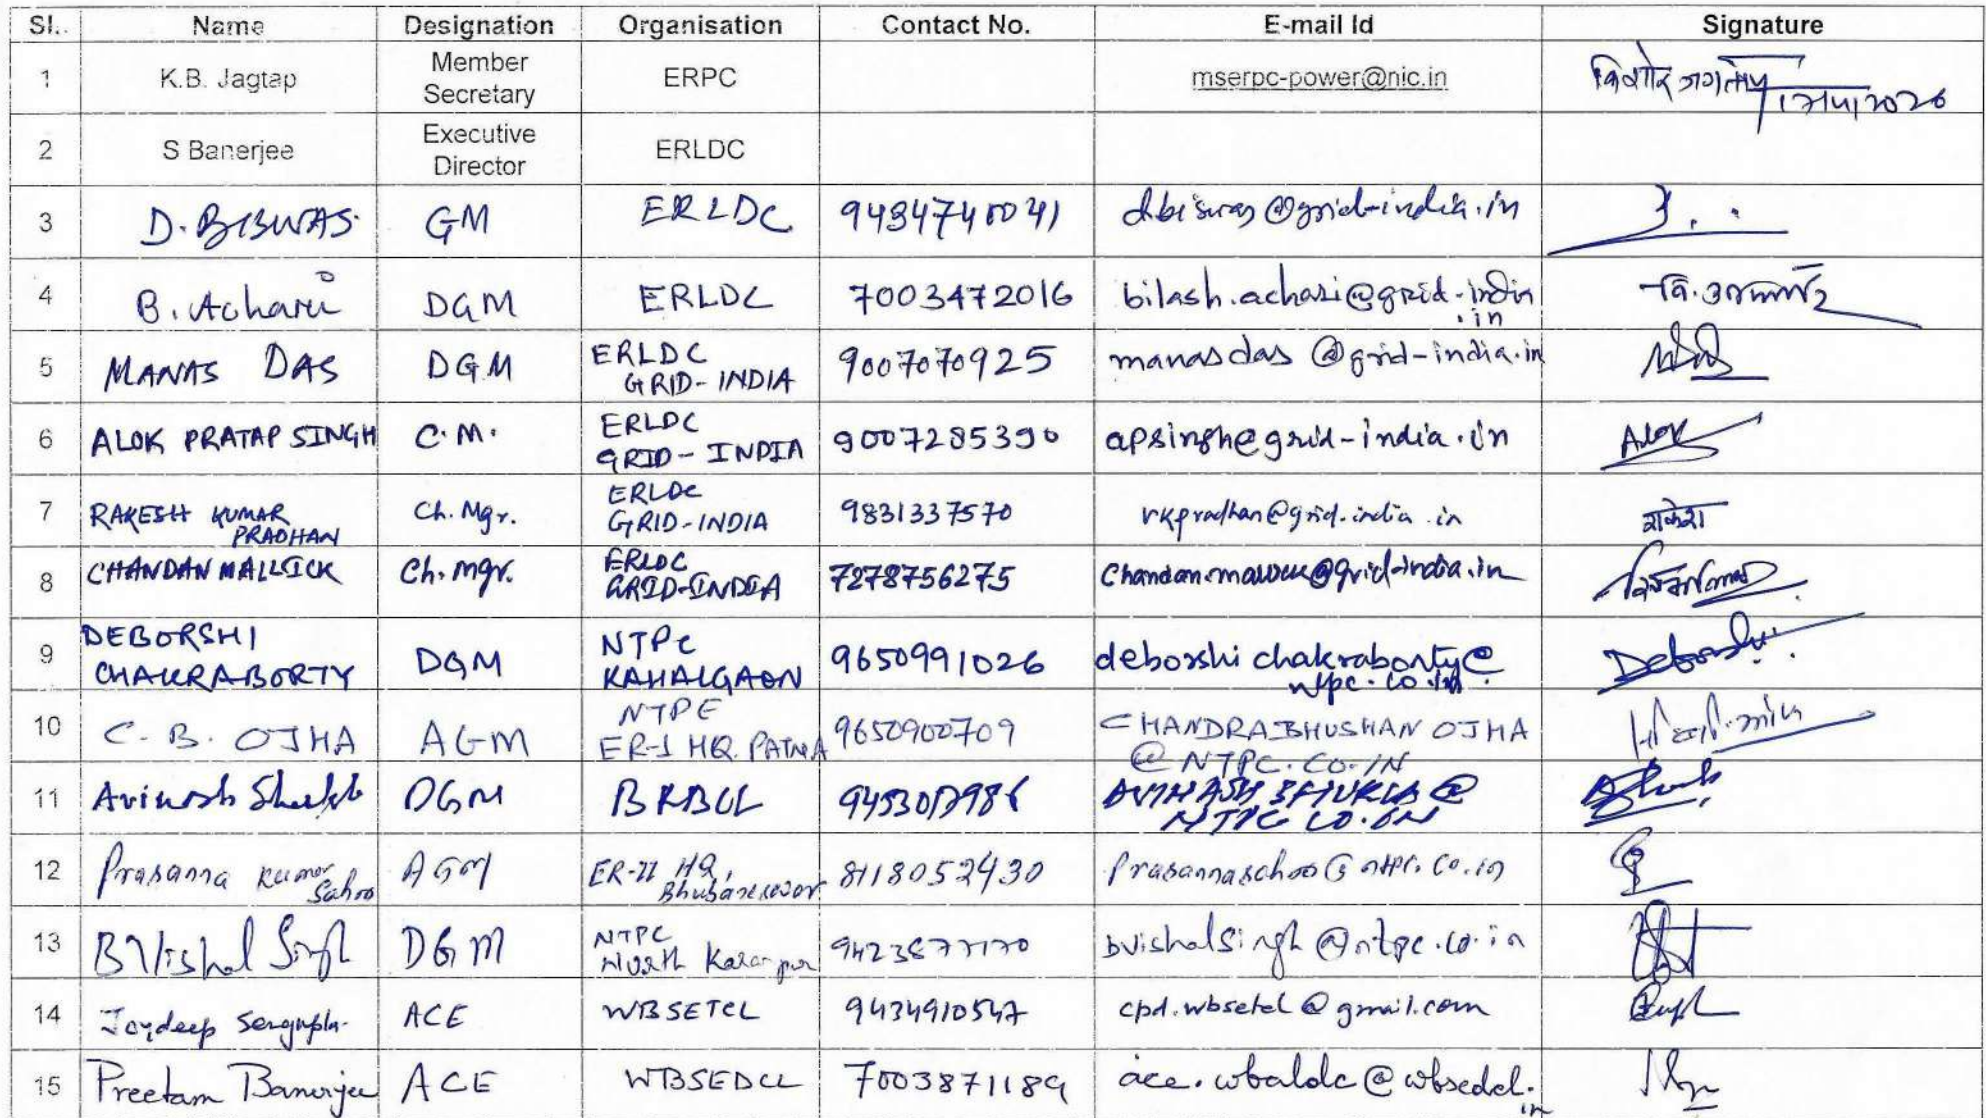 Sl. Name Designation Organisation Contact No. E-mail Id Signature
1 K.B. Jagtap Member Secretary ERPC mserpc-power@nic.in
2 S Banerjee Executive Director ERLDC
3 D. BISWAS GM ERLDC 9434740041 dbiswas@grid-india.in
4 B. Achari DGM ERLDC 7003472016 bilash.achari@grid-india.in
5 MANAS DAS DGM ERLDC GRID-INDIA 9007070925 manasdas@grid-india.in
6 ALOK PRATAP SINGH C.M. ERLDC GRID-INDIA 9007285390 apsingh@grid-india.in Alok
7 RAKESH KUMAR PRADHAN Ch. Mgr. ERLDC GRID-INDIA 9831337570 rkpradhan@grid-india.in राकेश
8 CHANDAN MALLICK Ch. Mgr. ERLDC GRID-INDIA 7278756275
9 DEBORSHI CHAKRABORTY DGM NTPC KAHALGAON 9650991026 deborshichakraborty@ntpc.co.in Deborshi
10 C. B. OJHA AGM NTPC ER-1 HQ. PATNA 9650900709 CHANDRABHUSHANOJHA@NTPC.CO.IN
11 Avinash Shukla DGM BRBCL AVINASHSHUKLA@NTPC.CO.IN
12 Prasanna Kumar Sahoo AGM ER-II HQ, Bhubaneswar 8118052430 Prasannasahoo@ntpc.co.in
13 B Vishal Singh DGM NTPC North Karanpura bvishalsingh@ntpc.co.in
14 Joydeep Sengupta ACE WBSETCL 9434910547 cpd.wbsetcl@gmail.com
15 Preetam Banerjee ACE WBSEDCL 7003871189